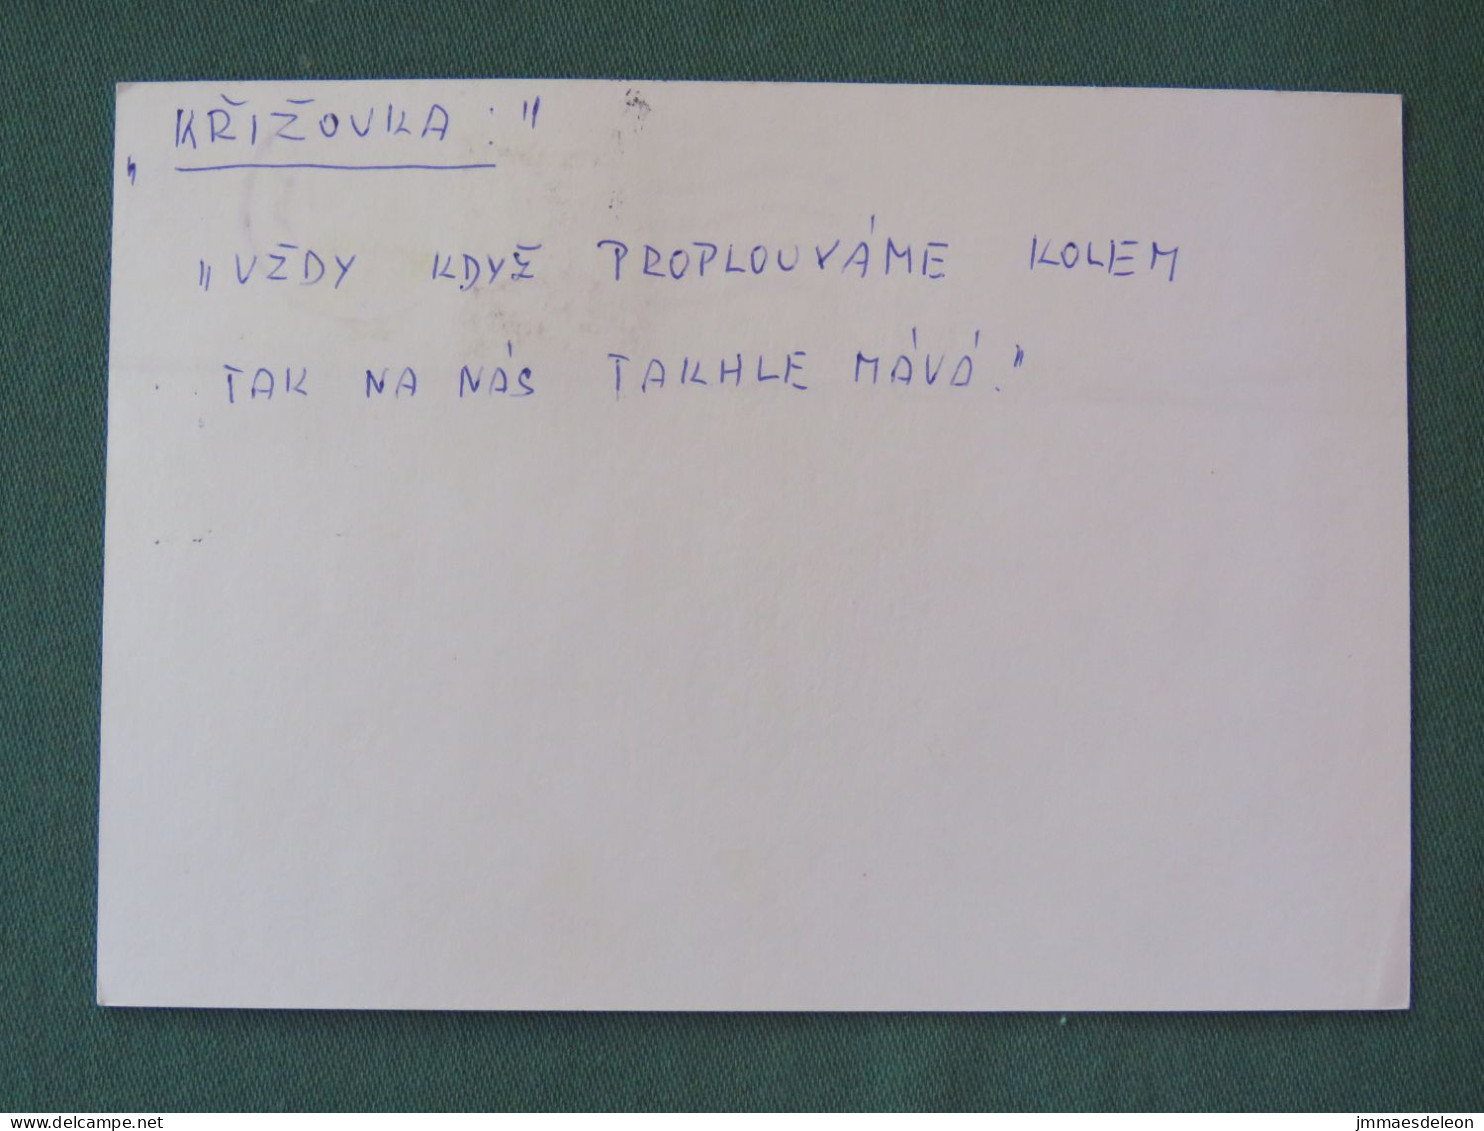 „KŘIŽOVKA:"
„VŽDY KDYŽ PROPLOUVÁME KOLEM
TAK NA NÁS TAKHLE MÁVÁ."
delcampe.net
jmmaesdeleon